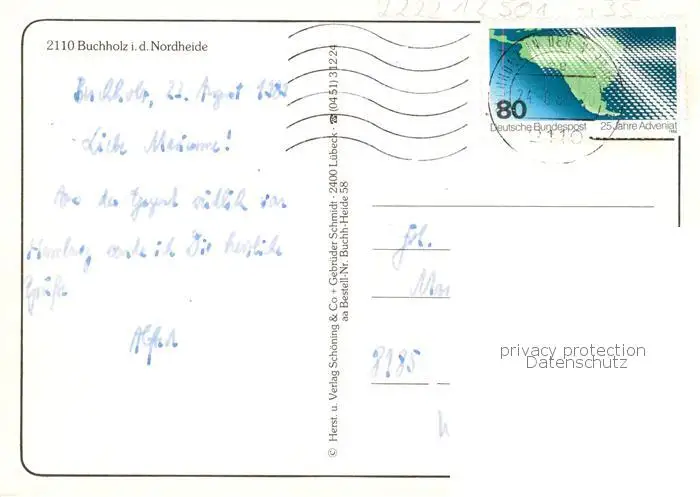 2110 Buchholz i. d. Nordheide
Buchholz, 22. August
Liebe Marianne!
Aus der Gegend südlich von
Hamburg sende ich Dir herzliche
Grüße
Alfred
© Herst. u. Verlag Schöning & Co + Gebrüder Schmidt · 2400 Lübeck · ☎ (04 51) 3 12 24
aa Bestell-Nr. Buchh-Heide 58
80
Deutsche Bundespost 25 Jahre Adveniat
2110
8985
privacy protection
Datenschutz